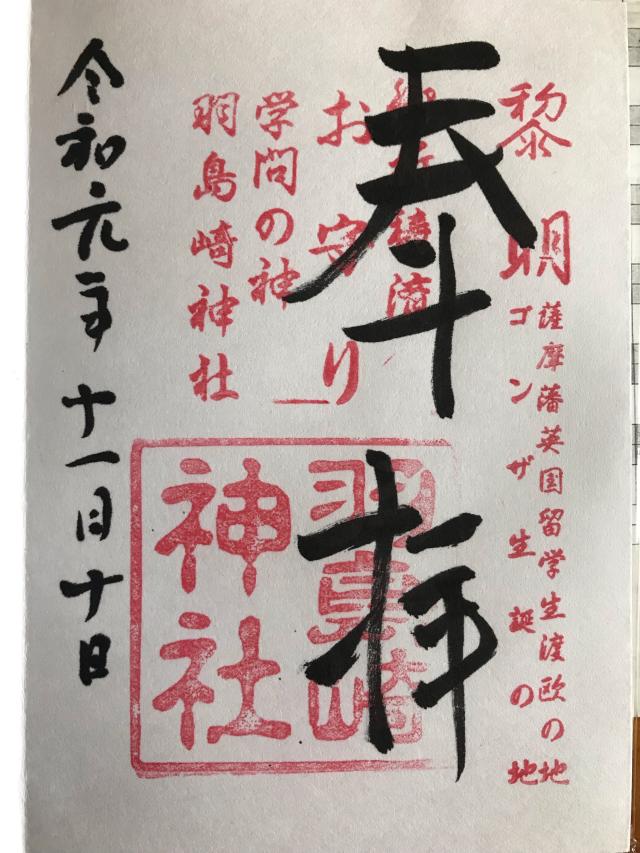 黎明
薩摩藩英国留学生渡欧の地
ゴンザ生誕の地
奉拝
お守り
学問の神
羽島崎神社
羽島崎
神社
令和元年十一月十日